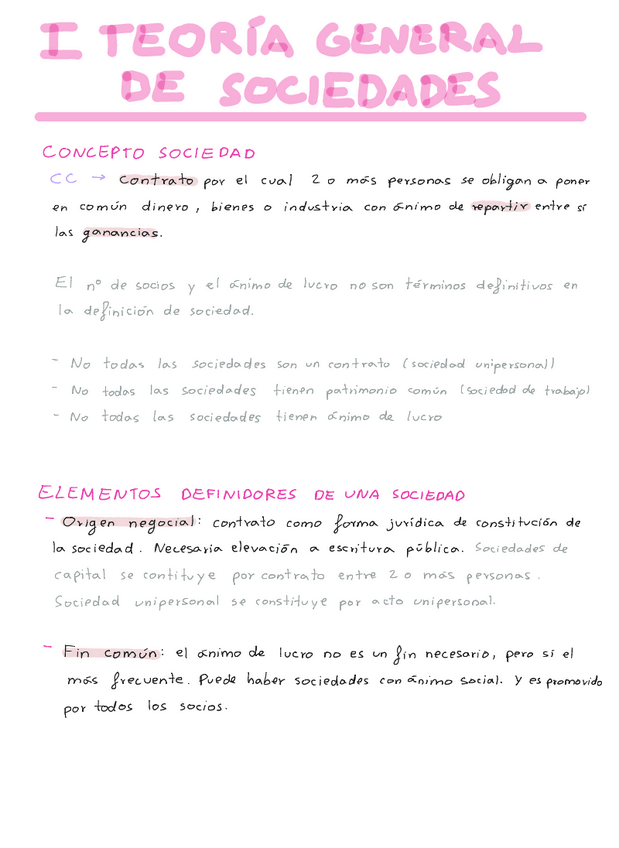 I TEORÍA GENERAL
DE SOCIEDADES
CONCEPTO SOCIEDAD
CC → Contrato por el cual 2 o más personas se obligan a poner
en común dinero, bienes o industria con ánimo de repartir entre sí
las ganancias.
El nº de socios y el ánimo de lucro no son términos definitivos en
la definición de sociedad.
- No todas las sociedades son un contrato (sociedad unipersonal)
- No todas las sociedades tienen patrimonio común (sociedad de trabajo)
- No todas las sociedades tienen ánimo de lucro
ELEMENTOS DEFINIDORES DE UNA SOCIEDAD
- Origen negocial: contrato como forma jurídica de constitución de
la sociedad. Necesaria elevación a escritura pública. Sociedades de
capital se contituye por contrato entre 2 o más personas.
Sociedad unipersonal se constituye por acto unipersonal.
- Fin común: el ánimo de lucro no es un fin necesario, pero si el
más frecuente. Puede haber sociedades con ánimo social. Y es promovido
por todos los socios.